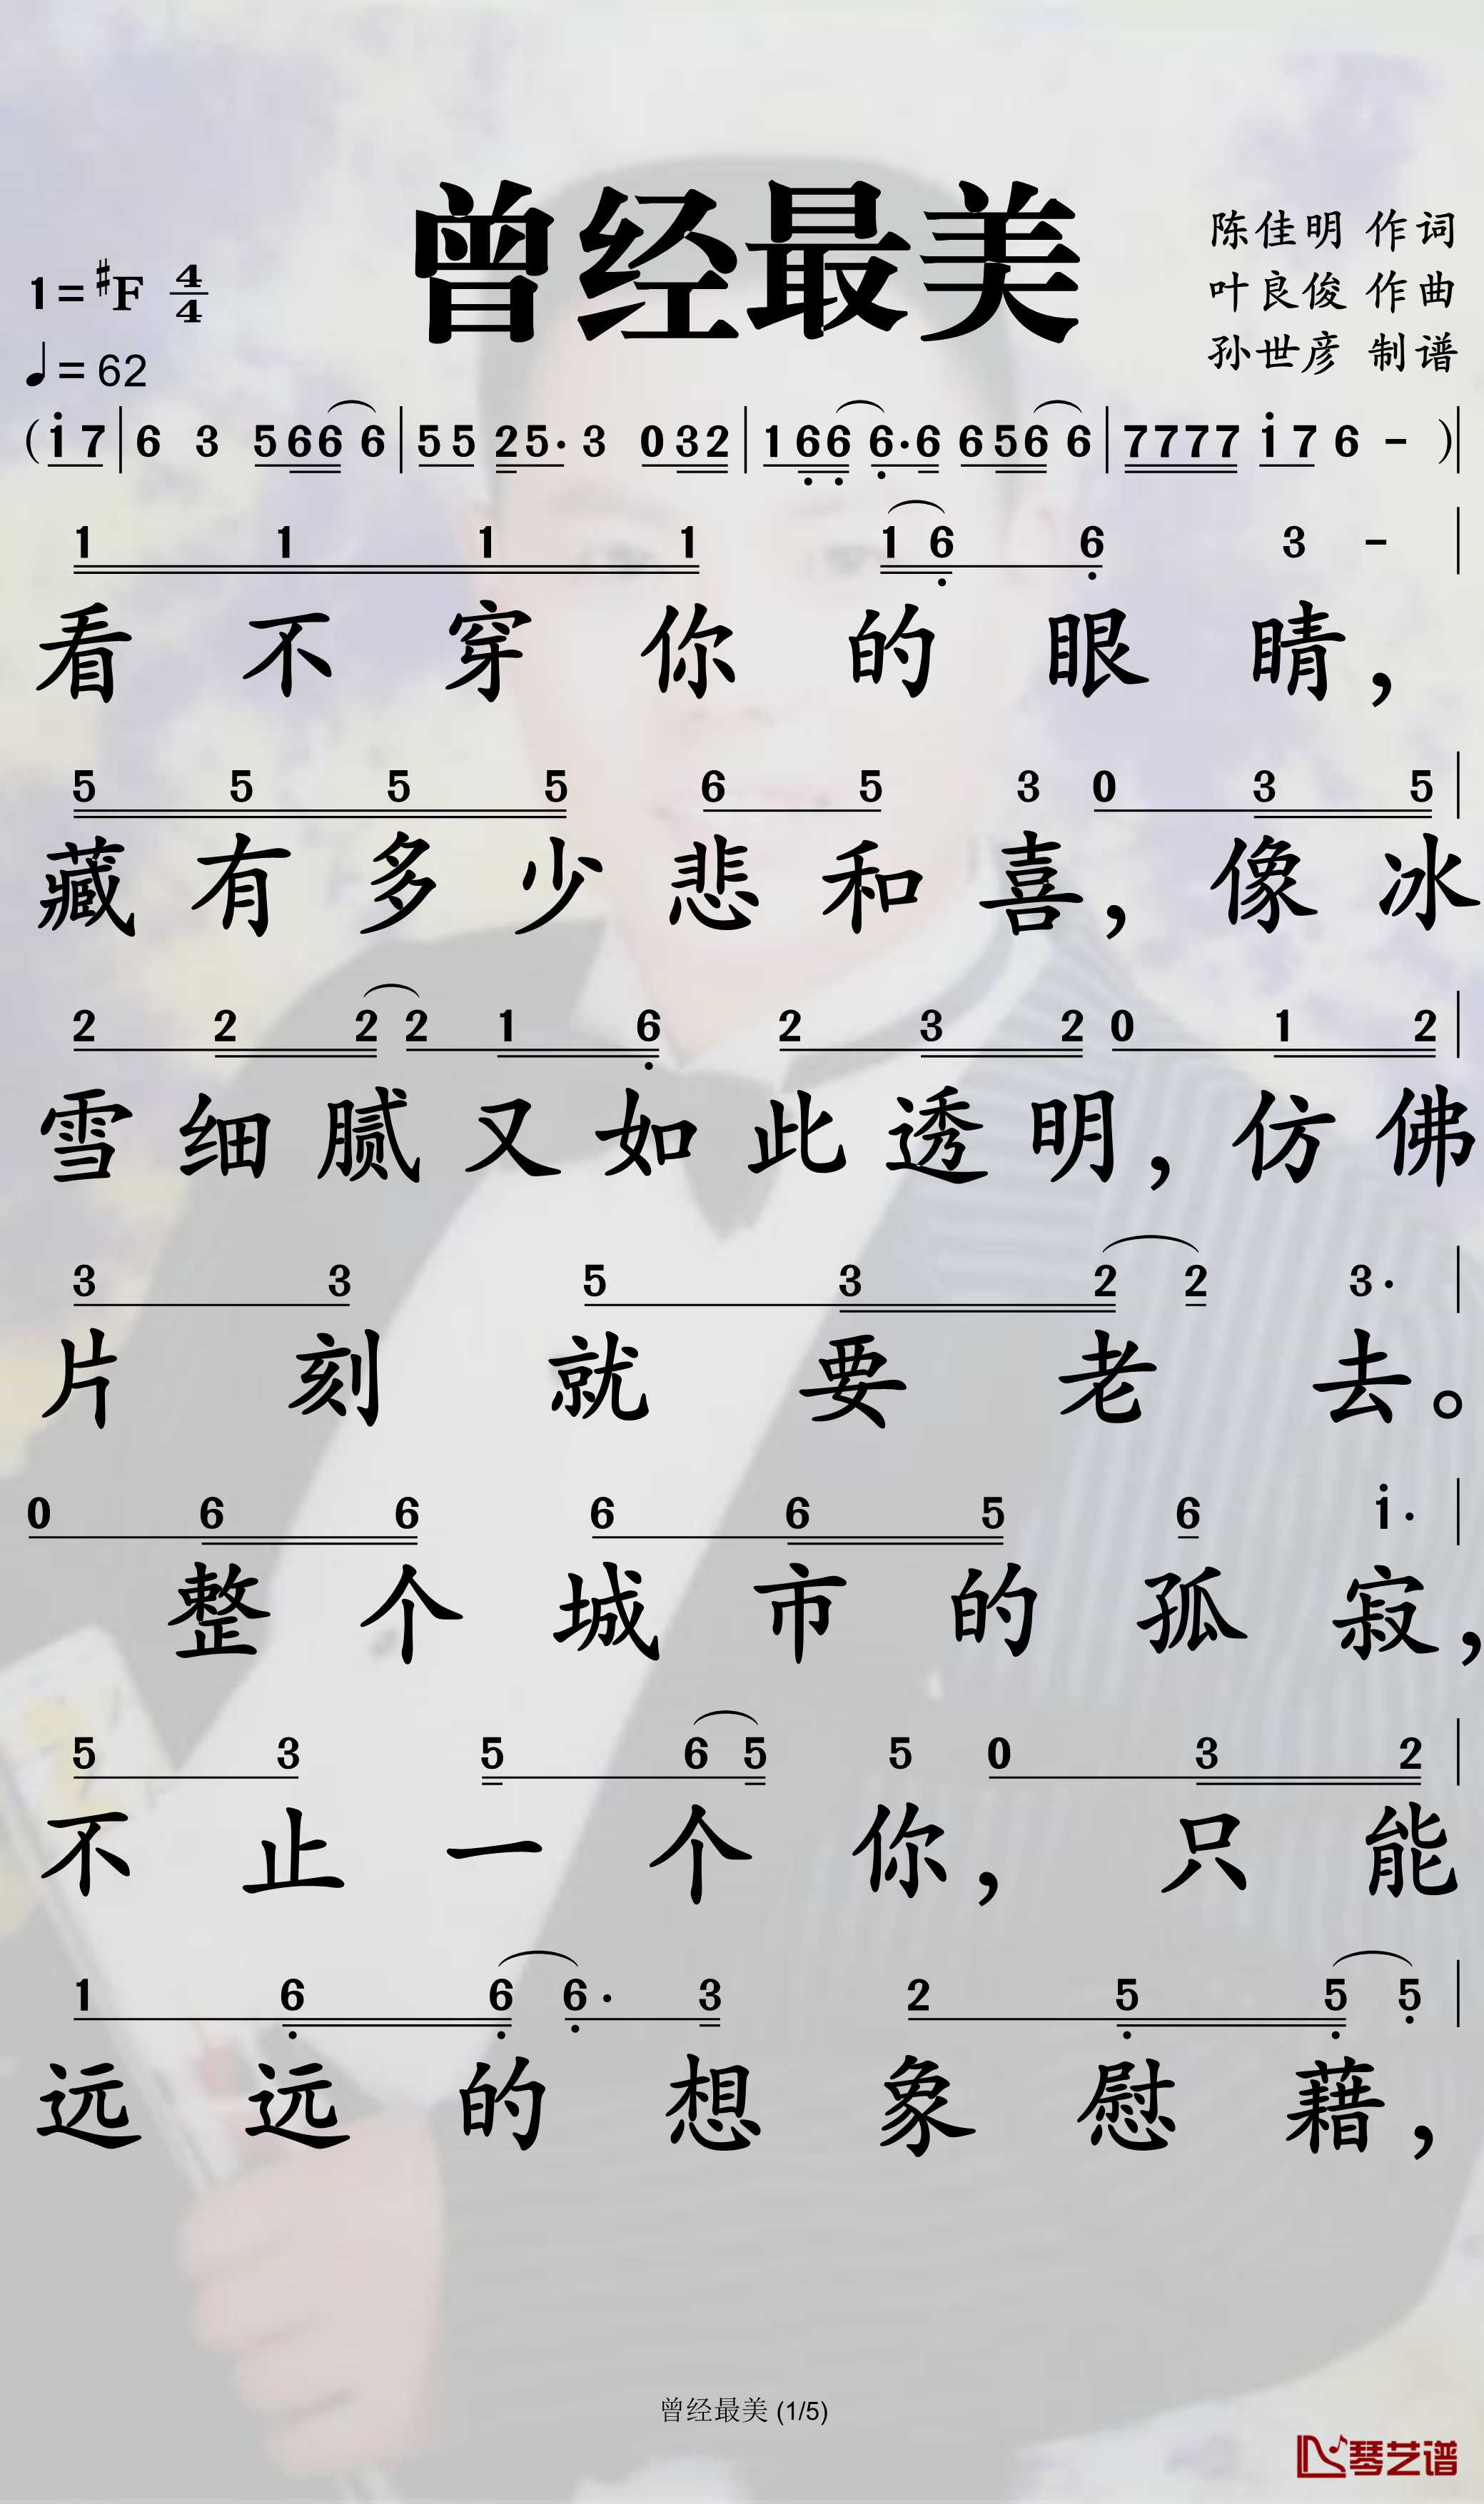 曾经最美
陈佳明 作词
叶良俊 作曲
孙世彦 制谱
1=#F 4/4
♩=62
(i 7 | 6 3 5 6 6 6 | 5 5 2 5· 3 0 3 2 | 1 6 6 6· 6 6 5 6 6 | 7 7 7 7 i 7 6 - )|
1 1 1 1 1 6 6 3 - |
看 不 穿 你 的 眼 睛，
5 5 5 5 6 5 3 0 3 5 |
藏 有 多 少 悲 和 喜， 像 冰
2 2 2 2 1 6 2 3 2 0 1 2 |
雪 细 腻 又 如 此 透 明， 仿 佛
3 3 5 3 2 2 3· |
片 刻 就 要 老 去。
0 6 6 6 6 5 6 i· |
整 个 城 市 的 孤 寂，
5 3 5 6 5 5 0 3 2 |
不 止 一 个 你， 只 能
1 6 6 6· 3 2 5 5 5 |
远 远 的 想 象 慰 藉，
曾经最美 (1/5)
琴艺谱